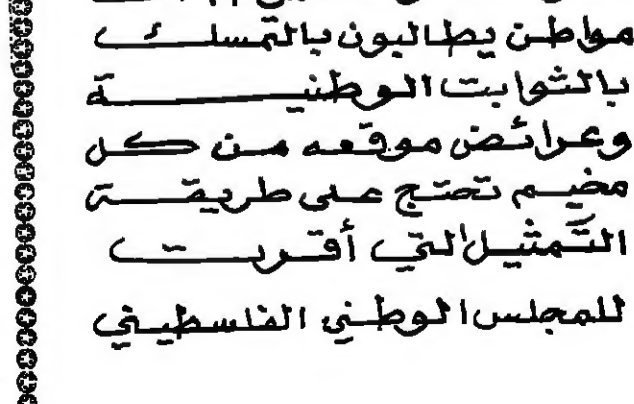 مواطن يطالبون بالتمسك
بالثوابت الوطنية
وعرائض موقعه من كل
مخيم تحتج على طريقة
التمثيل التي أقرت
للمجلس الوطني الفلسطيني